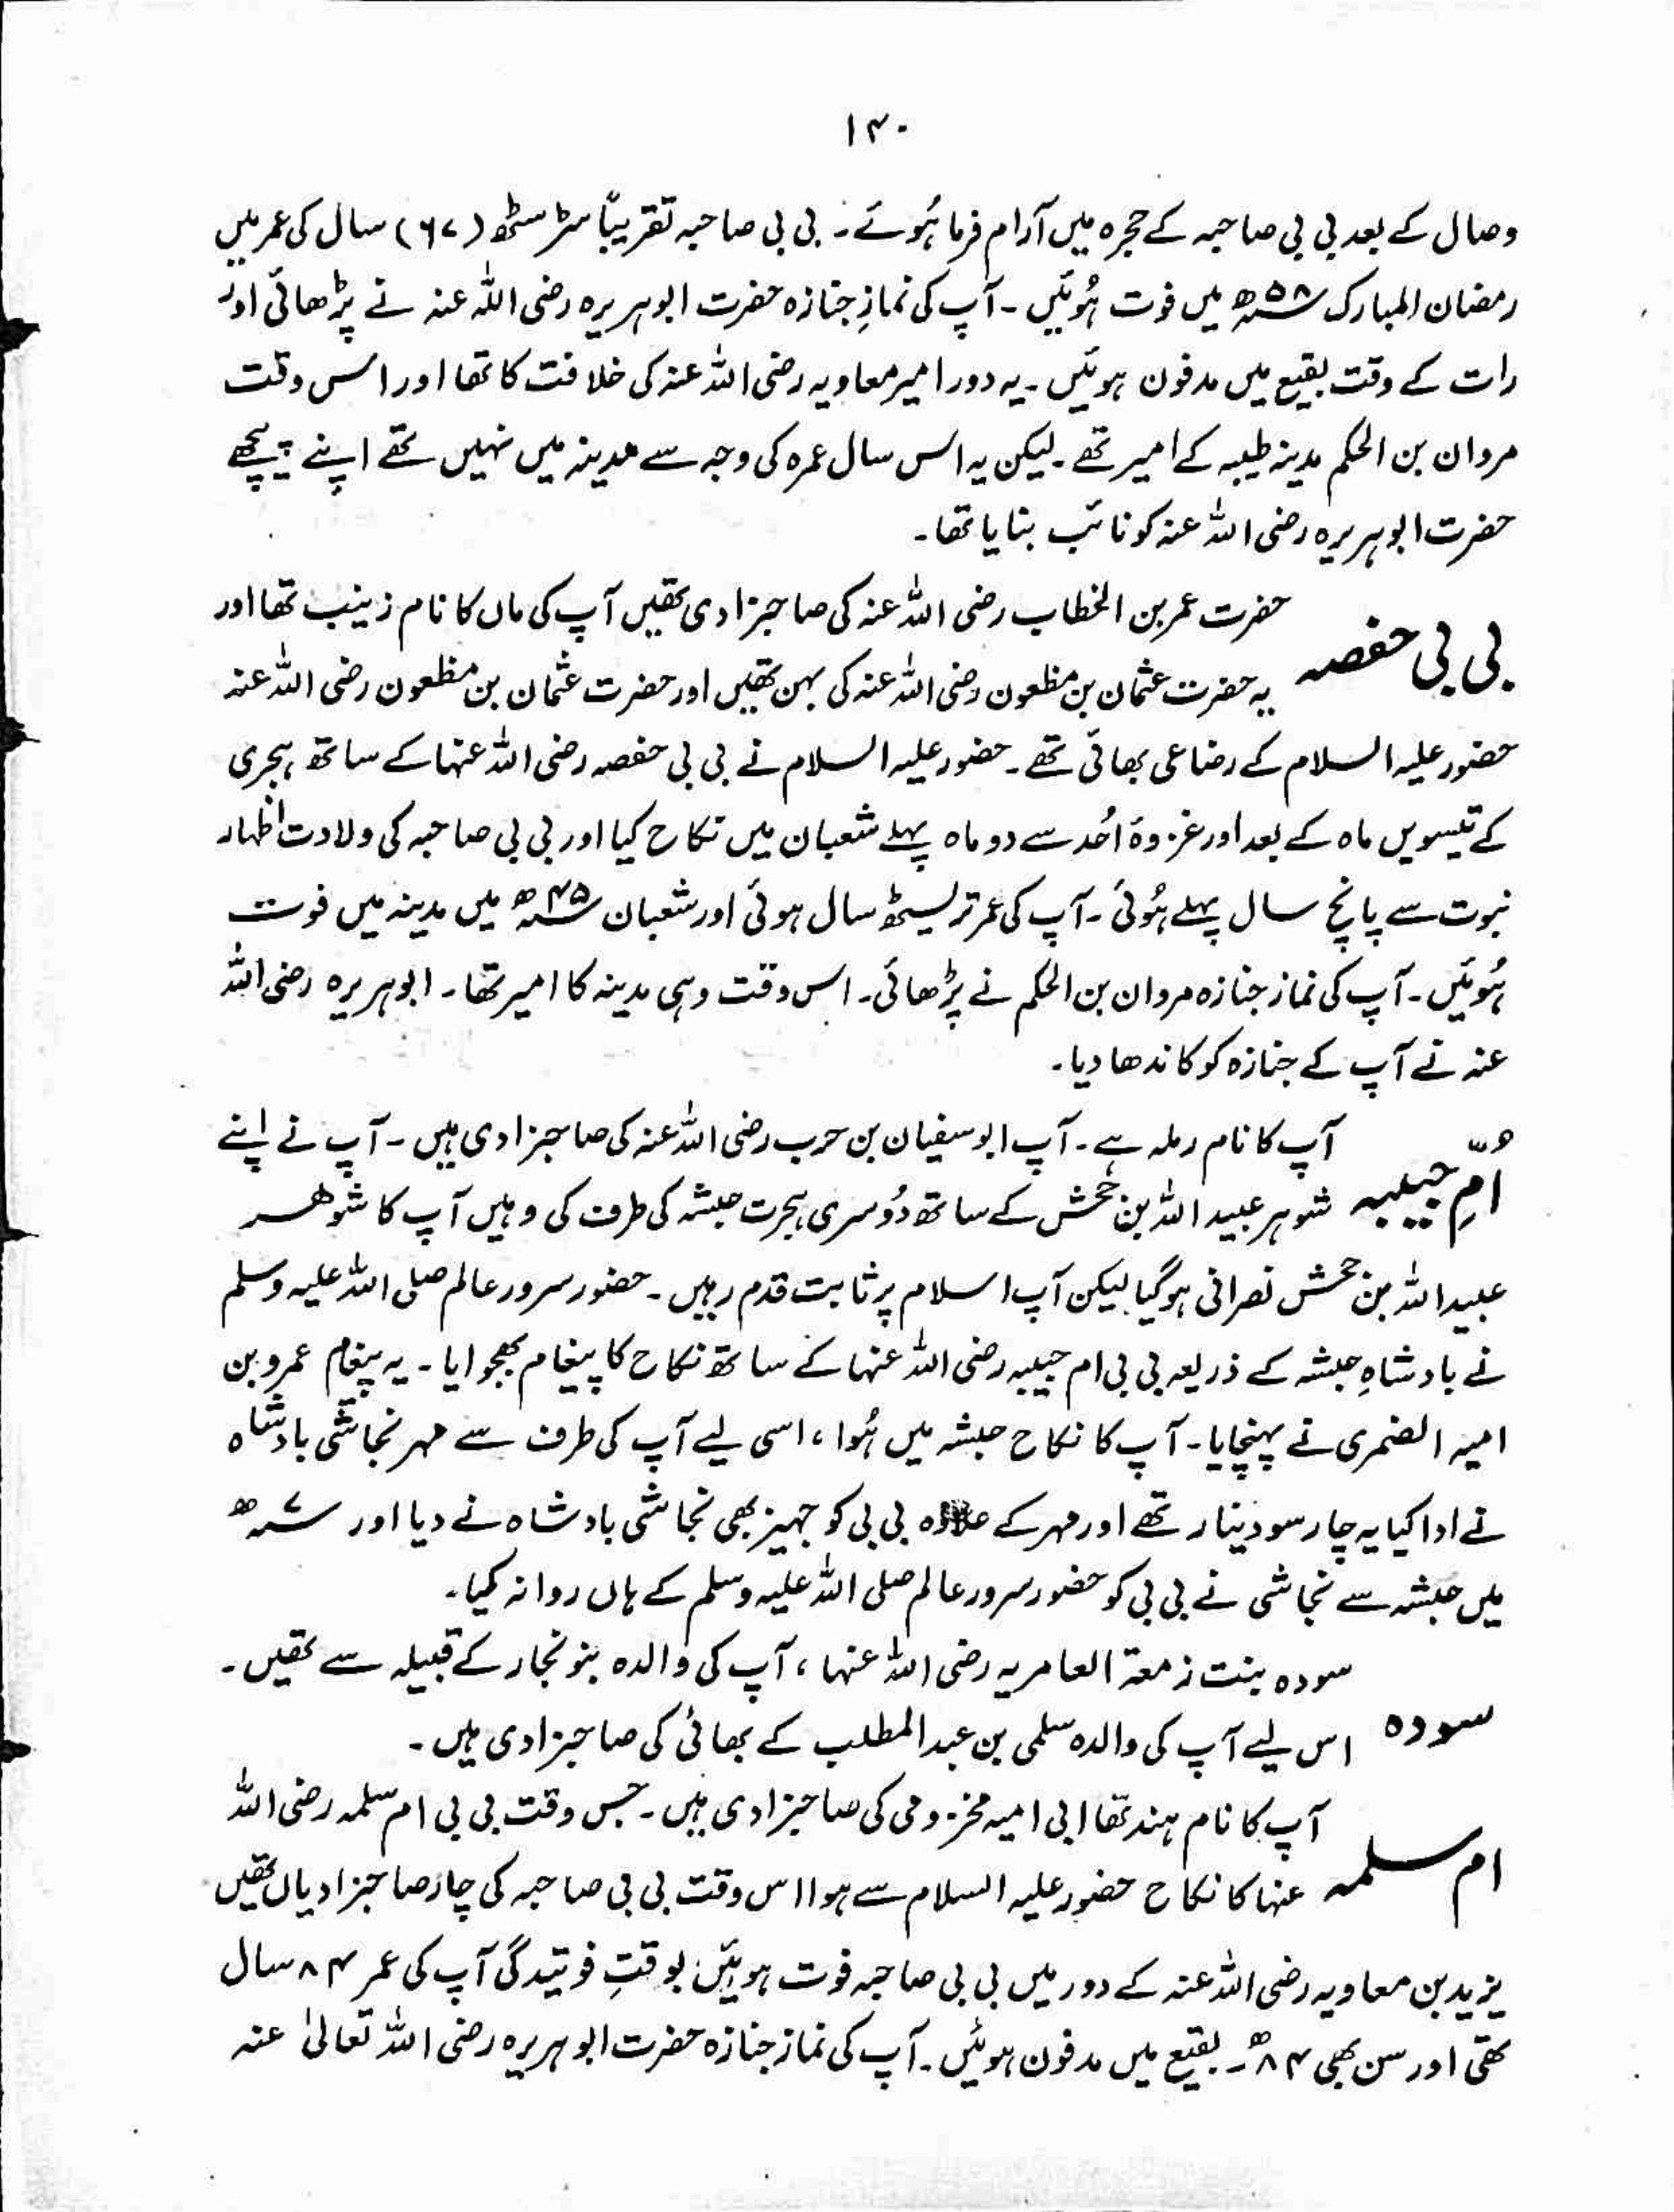 ۱۴۰
وصال کے بعد بی بی صاحبہ کے حجرہ میں آرام فرما ہُوئے۔ بی بی صاحبہ تقریباً سڑسٹھ (۶۷) سال کی عمر میں
رمضان المبارک ۵۸ھ میں فوت ہُوئیں۔ آپ کی نمازِ جنازہ حضرت ابوہریرہ رضی اللہ عنہ نے پڑھائی اور
رات کے وقت بقیع میں مدفون ہوئیں۔ یہ دور امیر معاویہ رضی اللہ عنہ کی خلافت کا تھا اور اس وقت
مروان بن الحکم مدینہ طیبہ کے امیر تھے۔ لیکن یہ اس سال عمرہ کی وجہ سے مدینہ میں نہیں تھے اپنے پیچھے
حضرت ابوہریرہ رضی اللہ عنہ کو نائب بنایا تھا۔
بی بی حفصہ
حضرت عمر بن الخطاب رضی اللہ عنہ کی صاحبزادی تھیں آپ کی ماں کا نام زینب تھا اور
یہ حضرت عثمان بن مظعون رضی اللہ عنہ کی بہن تھیں اور حضرت عثمان بن مظعون رضی اللہ عنہ
حضور علیہ السلام کے رضاعی بھائی تھے۔ حضور علیہ السلام نے بی بی حفصہ رضی اللہ عنہا کے ساتھ ہجری
کے تیسویں ماہ کے بعد اور غزوۂ اُحد سے دو ماہ پہلے شعبان میں نکاح کیا اور بی بی صاحبہ کی ولادت اظہار
نبوت سے پانچ سال پہلے ہُوئی۔ آپ کی عمر ترلیسٹھ سال ہوئی اور شعبان ۴۵ھ میں مدینہ میں فوت
ہُوئیں۔ آپ کی نماز جنازہ مروان بن الحکم نے پڑھائی۔ اس وقت وہی مدینہ کا امیر تھا۔ ابوہریرہ رضی اللہ
عنہ نے آپ کے جنازہ کو کاندھا دیا۔
اُمِّ حبیبہ
آپ کا نام رملہ ہے۔ آپ ابوسفیان بن حرب رضی اللہ عنہ کی صاحبزادی ہیں۔ آپ نے اپنے
شوہر عبید اللہ بن جحش کے ساتھ دُوسری ہجرت حبشہ کی طرف کی وہیں آپ کا شوھر
عبید اللہ بن جحش نصرانی ہوگیا لیکن آپ اسلام پر ثابت قدم رہیں۔ حضور سرور عالم صلی اللہ علیہ وسلم
نے بادشاہِ حبشہ کے ذریعہ بی بی ام حبیبہ رضی اللہ عنہا کے ساتھ نکاح کا پیغام بھجوایا۔ یہ پیغام عمرو بن
امیہ الضمری نے پہنچایا۔ آپ کا نکاح حبشہ میں ہُوا، اسی لیے آپ کی طرف سے مہر نجاشی بادشاہ
نے ادا کیا یہ چار سو دینار تھے اور مہر کے علاوہ بی بی کو جہیز بھی نجاشی بادشاہ نے دیا اور ۷ھ
میں حبشہ سے نجاشی نے بی بی کو حضور سرور عالم صلی اللہ علیہ وسلم کے ہاں روانہ کیا۔
سودہ
سودہ بنت زمعۃ العامریہ رضی اللہ عنہا، آپ کی والدہ بنو نجار کے قبیلہ سے تھیں۔
اس لیے آپ کی والدہ سلمی بن عبدالمطلب کے بھائی کی صاحبزادی ہیں۔
ام سلمہ
آپ کا نام ہند تھا ابی امیہ مخزومی کی صاحبزادی ہیں۔ جس وقت بی بی ام سلمہ رضی اللہ
عنہا کا نکاح حضور علیہ السلام سے ہوا اس وقت بی بی صاحبہ کی چار صاحبزادیاں تھیں
یزید بن معاویہ رضی اللہ عنہ کے دور میں بی بی صاحبہ فوت ہوئیں بوقتِ فوتیدگی آپ کی عمر ۸۴ سال
تھی اور سن بھی ۸۴ھ۔ بقیع میں مدفون ہوئیں۔ آپ کی نماز جنازہ حضرت ابوہریرہ رضی اللہ تعالیٰ عنہ